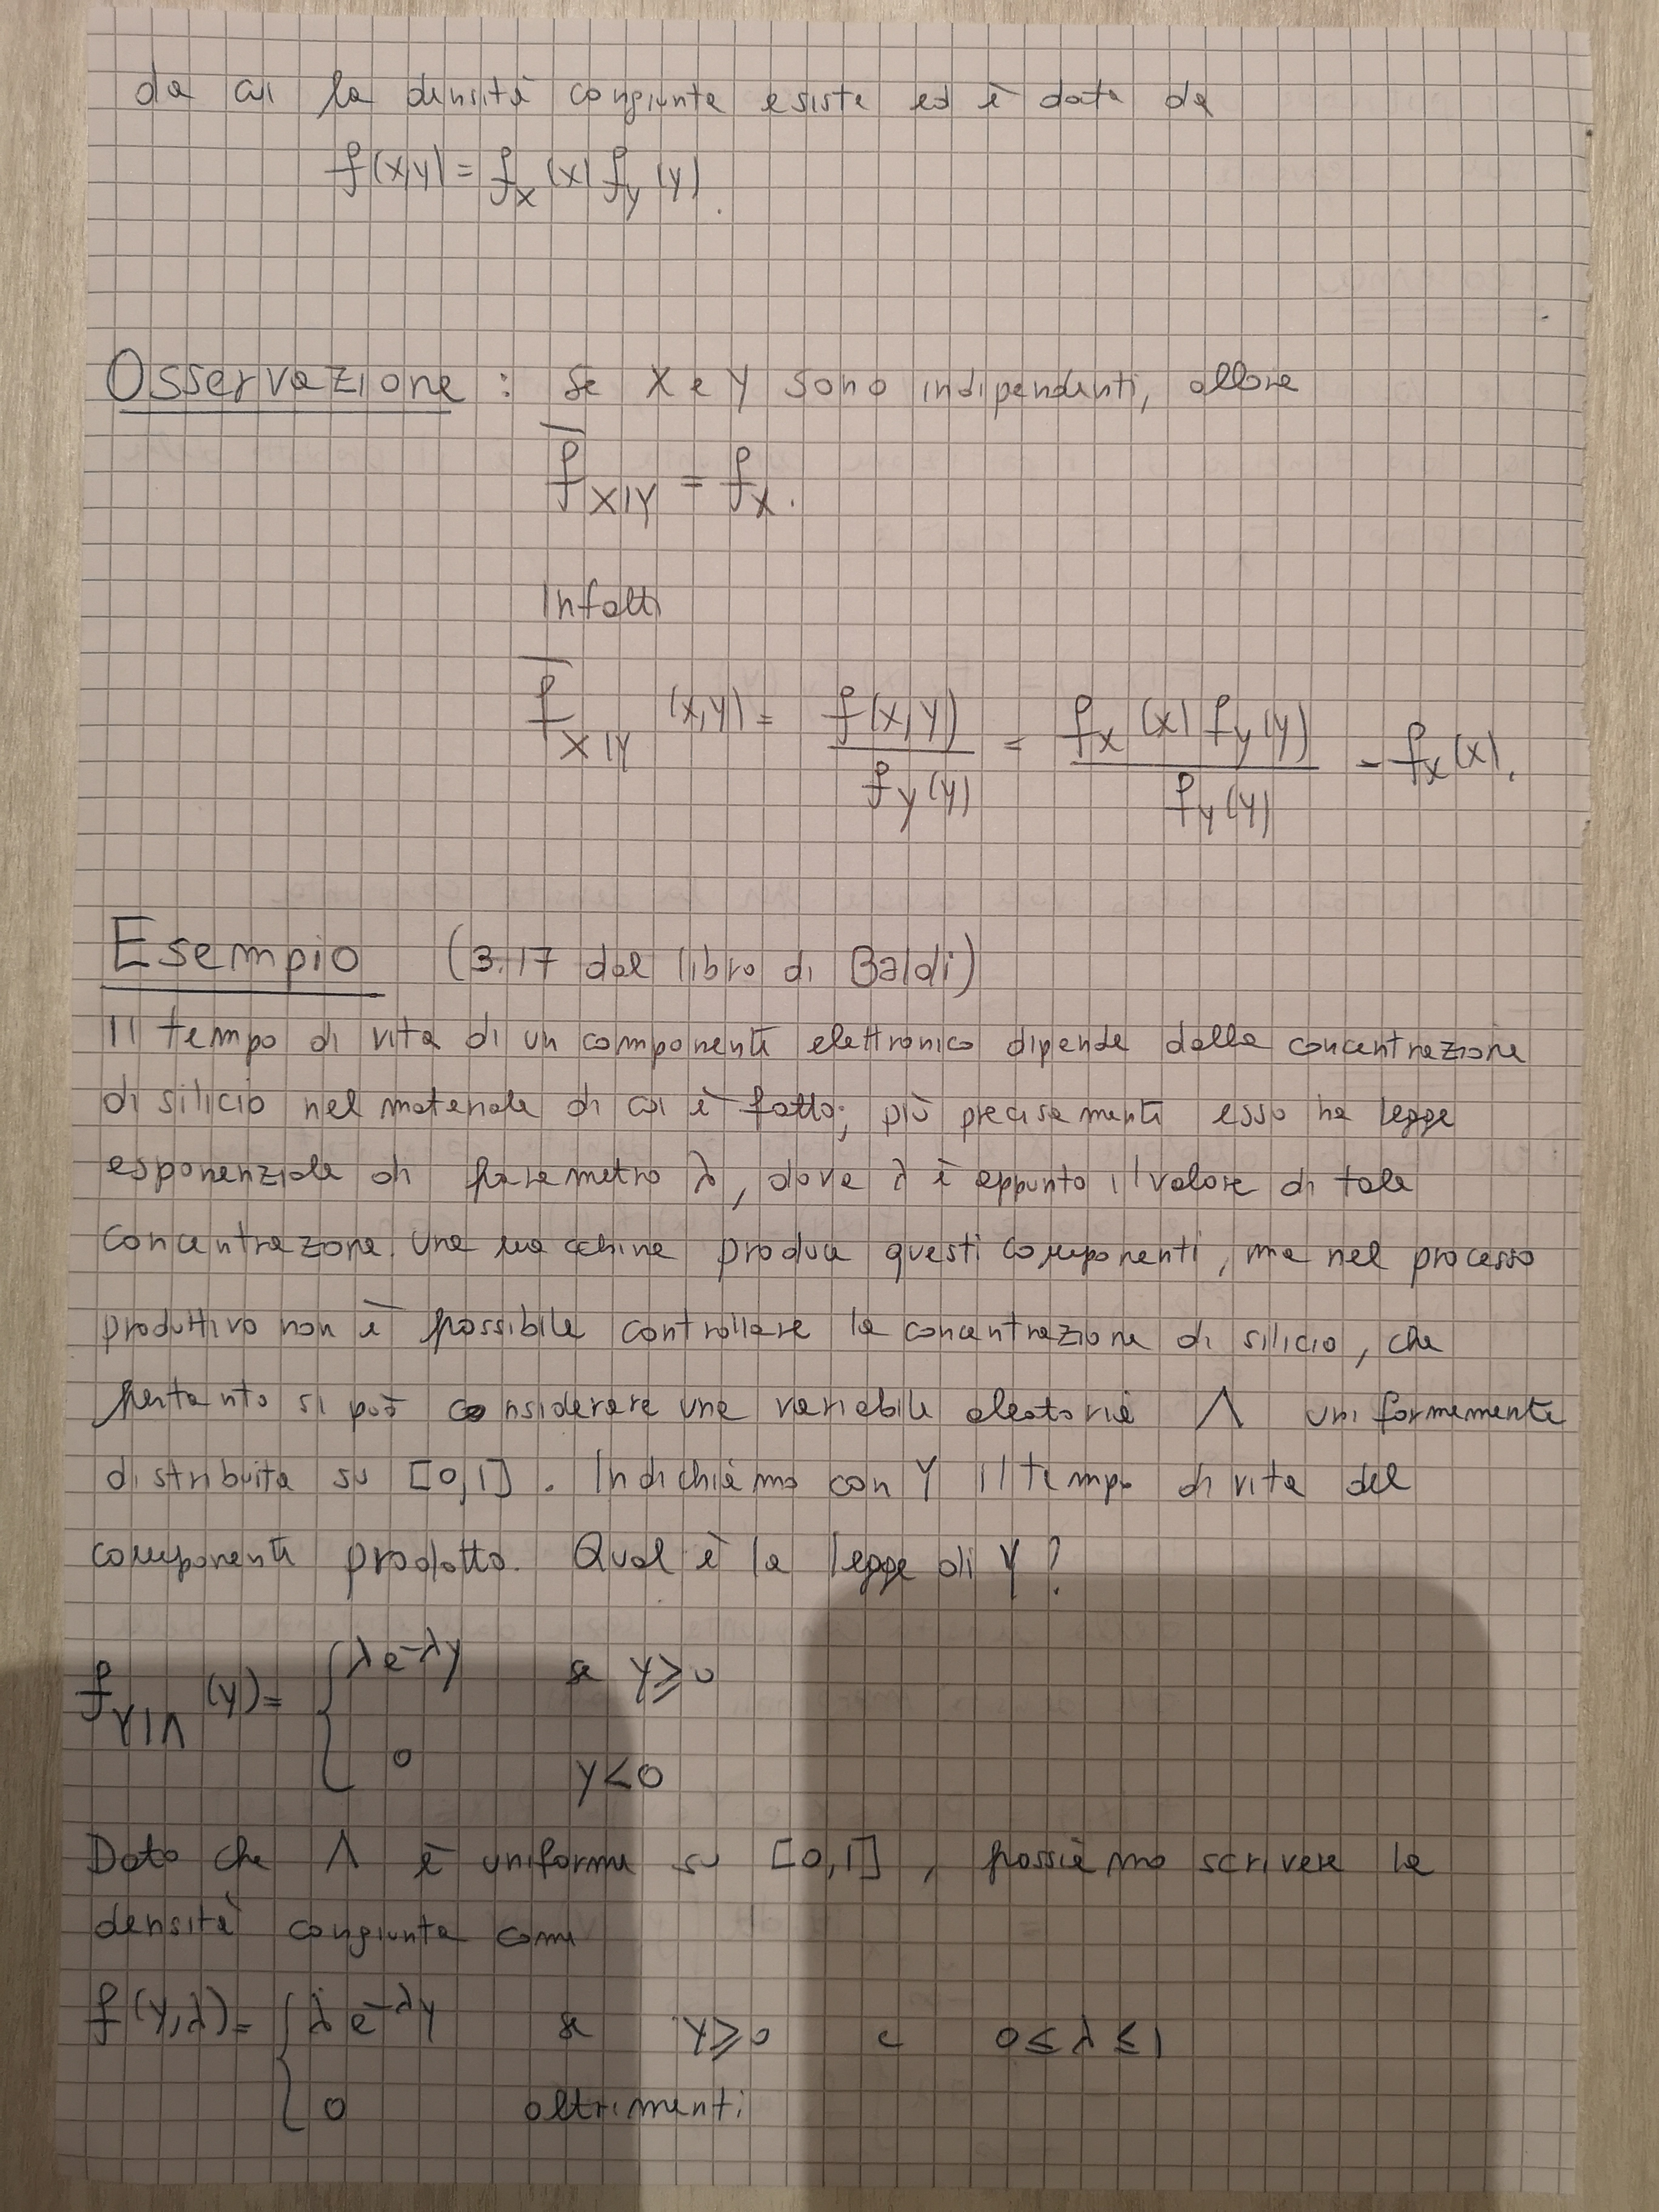 da cui la densità congiunta esiste ed è data da
f(x,y) = f_X(x) f_Y(y).
Osservazione : Se X e Y sono indipendenti, allora
f̅_X|Y = f_X.
Infatti
f̅_X|Y (x,y) = f(x,y) / f_Y(y) = f_X(x) f_Y(y) / f_Y(y) = f_X(x).
Esempio (3.17 dal libro di Baldi)
Il tempo di vita di un componente elettronico dipende dalla concentrazione
di silicio nel materiale di cui è fatto; più precisamente esso ha legge
esponenziale di parametro λ, dove λ è appunto il valore di tale
concentrazione. Una macchina produce questi componenti, ma nel processo
produttivo non è possibile controllare la concentrazione di silicio, che
pertanto si può considerare una variabile aleatoria Λ uniformemente
distribuita su [0,1]. Indichiamo con Y il tempo di vita del
componente prodotto. Qual è la legge di Y?
f_Y|Λ (y) = { λ e^-λy se y ≥ 0
0 y < 0
Dato che Λ è uniforme su [0,1], possiamo scrivere la
densità congiunta come
f(y,λ) = { λ e^-λy se y ≥ 0 e 0 ≤ λ ≤ 1
0 altrimenti